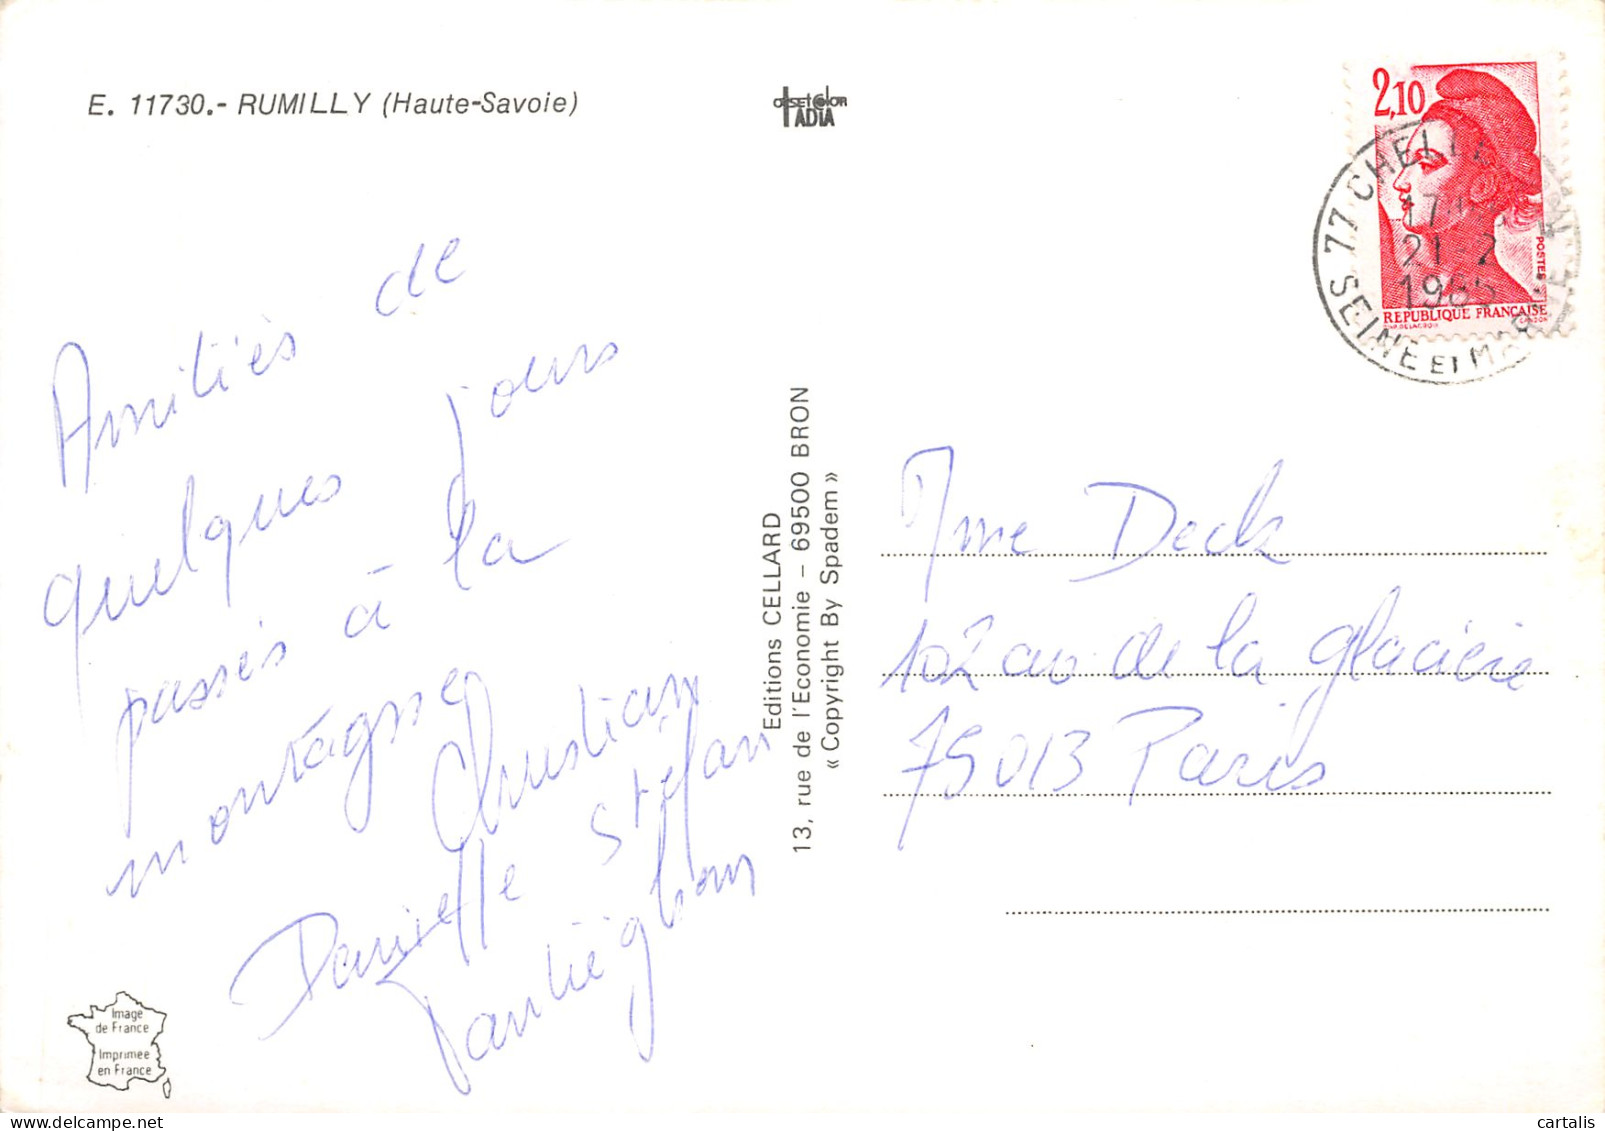 E. 11730.- RUMILLY (Haute-Savoie)
OFFSET COLOR
IADIA
2,10
POSTES
REPUBLIQUE FRANÇAISE
77 CHELLES
21-2
1985
SEINE ET M
Amitiés de
quelques jours
passés à la
montagne
Christian
Danielle Stéfan
Editions CELLARD
13, rue de l'Economie - 69500 BRON
« Copyright By Spadem »
Mme Deck
102 av de la glacière
75013 Paris
Image
de France
Imprimée
en France
cartalis